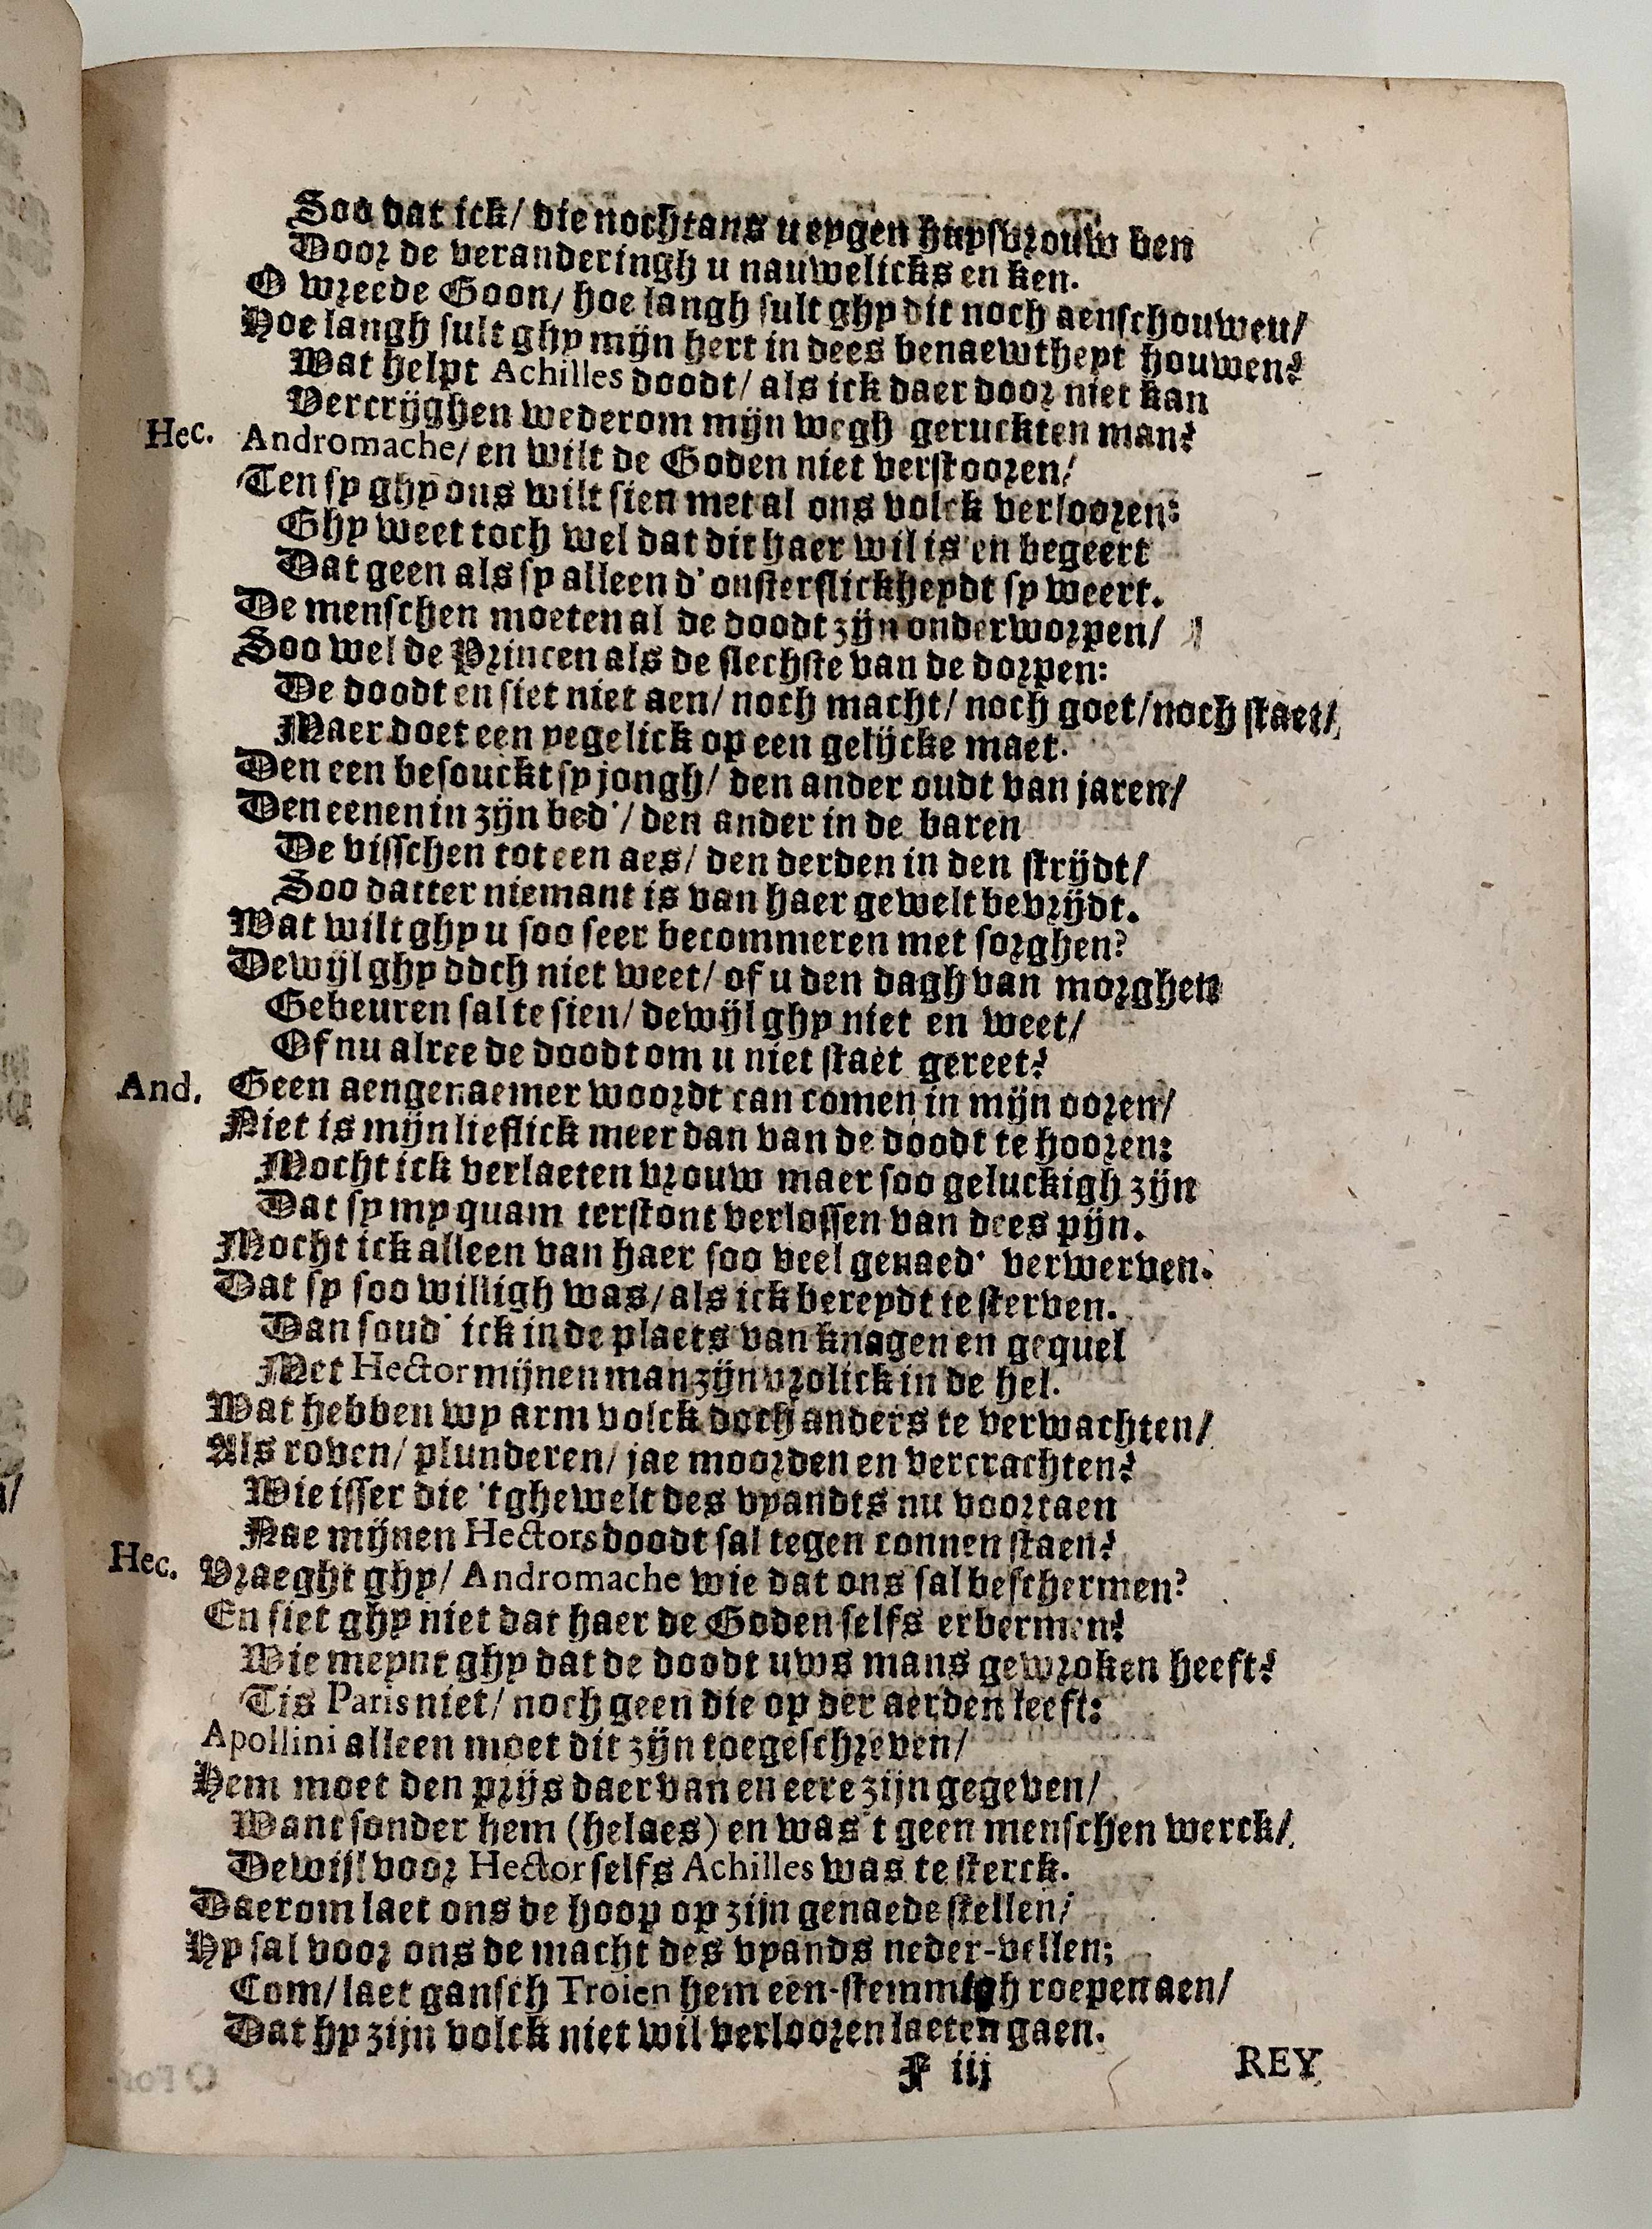 Soo dat ick/ die nochtans u eygen huysvrouw ben
Door de veranderingh u nauwelicks en ken.
O wreede Goon/ hoe langh sult ghy dit noch aenschouwen/
Hoe langh sult ghy mijn hert in dees benaewtheyt houwen?
Wat helpt Achilles doodt/ als ick daer door niet kan
Vercrijghen wederom mijn wegh geruckten man?
Hec. Andromache/ en wilt de Goden niet verstooren/
Ten sy ghy ons wilt sien met al ons volck verlooren:
Ghy weet toch wel dat dit haer wil is en begeert
Dat geen als sy alleen d'onsterflickheydt sy weert.
De menschen moeten al de doodt zijn onderworpen/
Soo wel de Princen als de slechste van de dorpen:
De doodt en siet niet aen/ noch macht/ noch goet/ noch staet/
Maer doet een yegelick op een gelijcke maet.
Den een besouckt sy jongh/ den ander oudt van jaren/
Den eenen in zijn bed'/ den ander in de baren
De visschen tot een aes/ den derden in den strijdt/
Soo datter niemant is van haer gewelt bevrijdt.
Wat wilt ghy u soo seer becommeren met sorghen?
Dewijl ghy doch niet weet/ of u den dagh van morghen
Gebeuren sal te sien/ dewijl ghy niet en weet/
Of nu alree de doodt om u niet staet gereet?
And. Geen aengenaemer woordt can comen in mijn ooren/
Niet is mijn lieflick meer dan van de doodt te hooren:
Mocht ick verlaeten vrouw maer soo geluckigh zijn
Dat sy my quam terstont verlossen van dees pijn.
Mocht ick alleen van haer soo veel genaed' verwerven.
Dat sy soo willigh was/ als ick bereydt te sterven.
Dan soud' ick in de plaets van knagen en gequel
Met Hector mijnen man zijn vrolick in de hel.
Wat hebben wy arm volck doch anders te verwachten/
Als roven/ plunderen/ jae moorden en vercrachten?
Wie isser die 't ghewelt des vyandts nu voortaen
Nae mijnen Hectors doodt sal tegen connen staen?
Hec. Vraeght ghy/ Andromache wie dat ons sal beschermen?
En siet ghy niet dat haer de Goden selfs erbermen?
Wie meynt ghy dat de doodt uws mans gewroken heeft?
Tis Paris niet/ noch geen die op der aerden leeft:
Apollini alleen moet dit zijn toegeschreven/
Hem moet den prijs daer van en eere zijn gegeven/
Want sonder hem (helaes) en was 't geen menschen werck/
Dewijl voor Hector selfs Achilles was te sterck.
Daerom laet ons de hoop op zijn genaede stellen/
Hy sal voor ons de macht des vyands neder-vellen;
Com/ laet gansch Troien hem een-stemmigh roepen aen/
Dat hy zijn volck niet wil verloozen laeten gaen.
F iij
REY